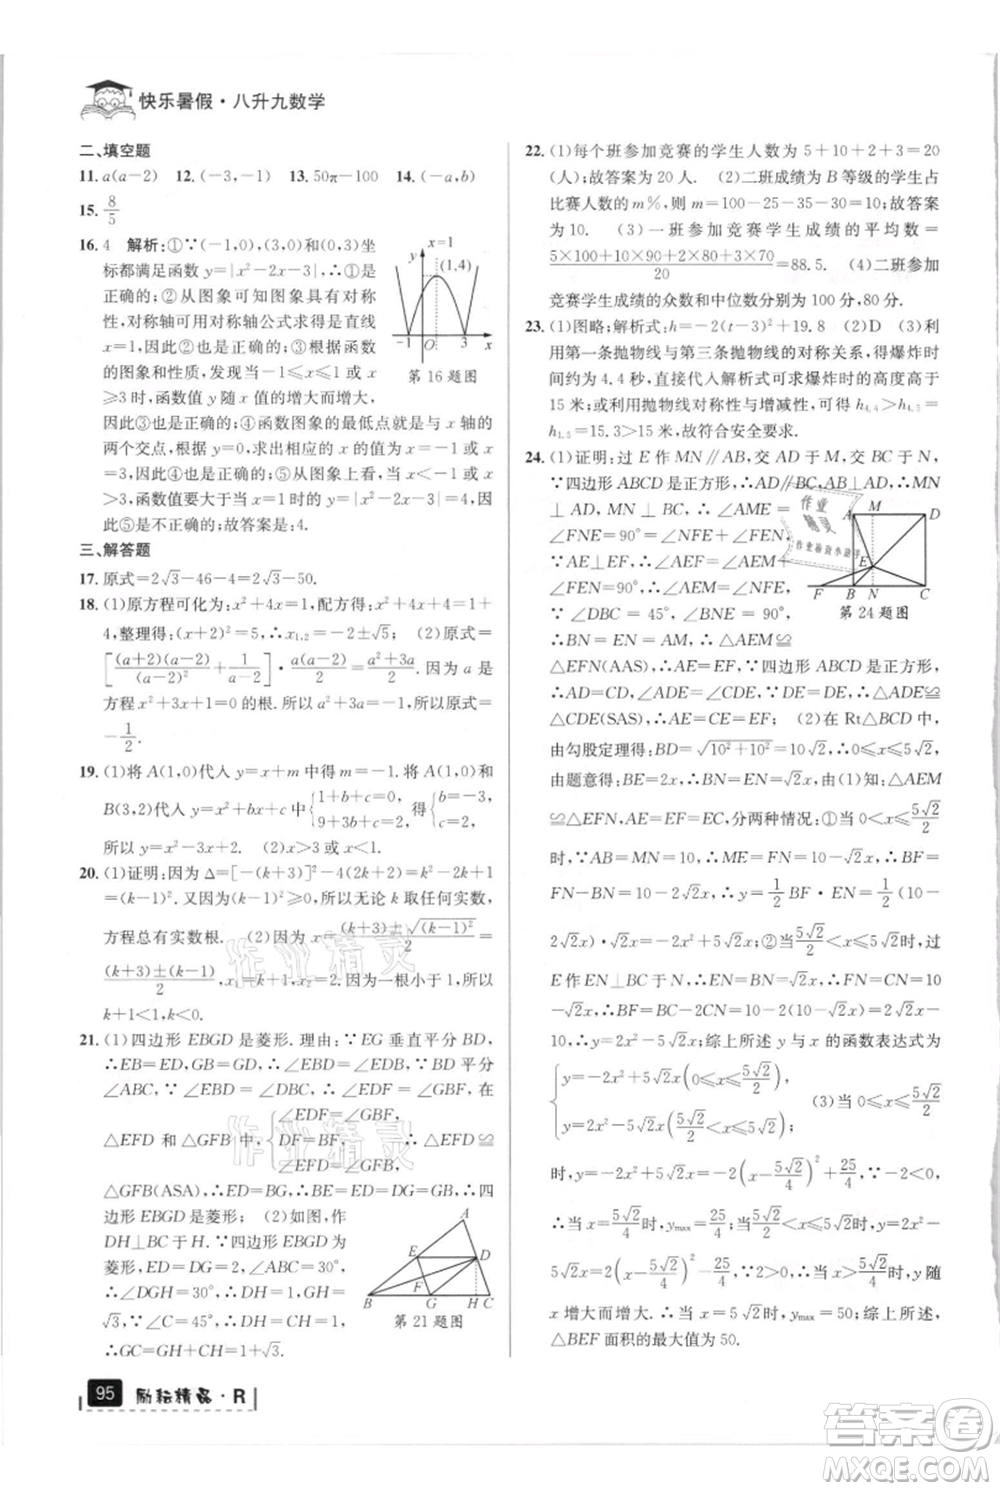 快乐暑假·八升九数学
二、填空题
11. a(a－2)　12. (－3,－1)　13. 50π－100　14. (－a,b)
15. 8/5
16. 4　解析:①∵(－1,0),(3,0)和(0,3)坐
标都满足函数 y=|x²－2x－3|,∴①是
正确的;②从图象可知图象具有对称
性,对称轴可用对称轴公式求得是直
线 x=1,∴②是正确的;③根据函数
的图象和性质,发现当－1≤x≤1 或 x
≥3时,函数值 y 随 x 值的增大而增大,
∴③是正确的;④函数图象的最低点就是与 x 轴的
两个交点,根据 y=0,求出相应的 x 的值为 x=－1
或 x=3,∴④是正确的;⑤从图象上看,当 x＜－1 或
x＞3,函数值要大于当 x=1 时的 y=|x²－2x－3|=4,
∴⑤是不正确的;故答案是:4.
x=1
(1,4)
－1 O 3 x
第 16 题图
三、解答题
17. 原式=2√3－46－4=2√3－50.
18. (1)原方程可化为:x²＋4x=1,∴x²＋4x＋4=1＋
4,整理得:(x＋2)²=5,∴x₁,₂=－2±√5;　(2)原式=
[(a＋2)(a－2)/(a－2)²＋1/(a－2)]·a(a－2)/2=(a²＋3a)/2,因为 a 是
方程 x²＋3x＋1=0 的根.所以 a²＋3a=－1,原式=
－1/2.
19. (1)将 A(1,0)代入 y=x＋m 中得 m=－1,将 A 和
B(3,2)代入 y=x²＋bx＋c 中{1＋b＋c=0, 9＋3b＋c=2, 得{b=－3, c=2,
所以 y=x²－3x＋2.　(2)x＞3 或 x＜1.
20. (1)证明:因为 Δ=[－(k＋3)]²－4(2k＋2)=k²－2k＋1
=(k－1)².因为(k－1)²≥0,所以无论 k 取任何实数,
方程总有实数根.　(2)因为 x=((k＋3)±√(k－1)²)/2=
((k＋3)±(k－1))/2,x₁=k＋1,x₂=2.因为 k＋1＜2,所以
k＜1.
21. (1)四边形 EBGD 是菱形.理由:∵EG 垂直平分 BD,
∴EB=ED,GB=GD,∴∠EBD=∠EDB,∵BD 平分
∠ABC,∵∠EBD=∠DBC,∴∠EDF=∠GBF,在
△EFD 和△GFB 中{∠EDF=∠GBF, DF=BF, ∠EFD=∠GFB, ∴△EFD≌△
GFB(ASA),∴ED=BG,∴BE=ED=DG=GB,∴四
边形 EBGD 是菱形;　(2)如图,作
DH⊥BC,∵四边形 EBGD 为菱形
ED=DG=2,∴∠ABC=30°,
∴∠DGH=30°,∴DH=1,GH=
√3,∵∠C=45°,∴DH=CH=1,
∴GC=GH＋CH=1＋√3.
A
E D
F
B G H C
第 21 题图
22. (1)每个班参加竞赛的学生人数为 5＋10＋2＋3=20
(人);故答案为 20 人.　(2)二班成绩为 B 等级的学生占
比赛人数的 m%,所以 m=100－25－35－30=10;故答案
为 10.　(3)一班参加竞赛学生成绩的平均数=
(5×100＋10×90＋2×80＋3×70)/20=88.5.　(4)二班参加
竞赛学生成绩的众数和中位数分别为 100 分,80 分.
23. (1)图略;解析式:h=－2(t－3)²＋19.8　(2)D　(3)利
用第一条抛物线与第三条抛物线的对称关系,爆炸时
间约为 4.4 秒,直接代入解析式可求爆炸时的高度高于
15 米;或利用抛物线对称性与增减性,可知 h₄.₄＞h₄.₅=
h₁.₅=15.3＞15 米,故符合安全要求.
24. (1)证明:过 E 作MN∥AB,交 AD 于 M,交 BC 于 N,
∵四边形 ABCD 是正方形,∴AD∥BC,AB⊥AD,∴MN
⊥AD,MN⊥BC,∴∠AME=
∠FNE=90°=∠NFE＋∠FEN,
∵AE⊥EF,∴∠AEF=∠AEM＋
∠FEN=90°,∴∠AEM=∠NFE,
∵∠DBC=45°,∠BNE=90°,
∴BN=EN=AM,∴△AEM≌
△EFN(AAS),∴AE=EF,∵四边形 ABCD 是正方形,
∴AD=CD,∠ADE=∠CDE,∵DE=DE,∴△ADE≌
△CDE(SAS),∴AE=CE=EF;　(2)在 Rt△BCD 中,
由勾股定理得:BD=√(10²＋10²)=10√2,∴0≤x≤5√2,
由题意得:BE=2x,∴BN=EN=√2x,由(1)知:△AEM
≌△EFN,∴ME=FN,EF=EC,分两种情况:①当 0＜x＜5√2/2
时,∵AB=MN=10,∴ME=FN=10－√2x,∴BF=
FN－BN=10－√2x－√2x=10－2√2x,∴y=1/2 BF·EN=1/2(10－
2√2x)·√2x=－2x²＋5√2x(0≤x≤5√2/2);②当 5√2/2＜x≤5√2时,过
E 作EN⊥BC 于 N,∴EN=BN=√2x,∴FN=CN=10－
√2x,∴BF=BC－2CN=10－2(10－√2x)=2√2x－
10,∴y=1/2 BF·EN=1/2(2√2x－10)·√2x=2x²－5√2x(5√2/2＜x≤5√2);综上所述 y 与 x 的函数表达式为
{y=－2x²＋5√2x(0≤x≤5√2/2), y=2x²－5√2x(5√2/2＜x≤5√2);　(3)当 0≤x≤5√2/2
时,y=－2x²＋5√2x=－2(x－5√2/4)²＋25/4,∵－2＜0,
∴当 x=5√2/4时,y_max=25/4;当5√2/2＜x≤5√2时,y=2x²－
5√2x=2(x－5√2/4)²－25/4,∵2＞0,∴当 x＞5√2/2时,y 随
x 增大而增大,∴当 x=5√2时,y_max=50;综上所述,
△BEF 面积的最大值为 50.
A M D
E
F B N C
第 24 题图
作业精灵
作业精灵
95 励耘精品·R
答案圈
MXQE.COM